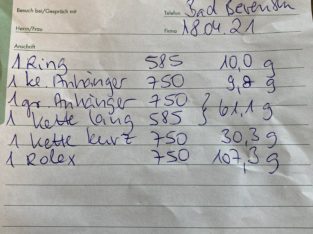 Besuch bei/Gespräch mit
Telefon Bad Bevensen
Herrn/Frau
Firma 18.04.21
Anschrift
1 Ring 585 10,0 g
1 kl. Anhänger 750 9,8 g
1 gr. Anhänger 750
1 Kette lang 585 } 61,1 g
1 Kette kurz 750 30,3 g
1 Rolex 750 107,3 g